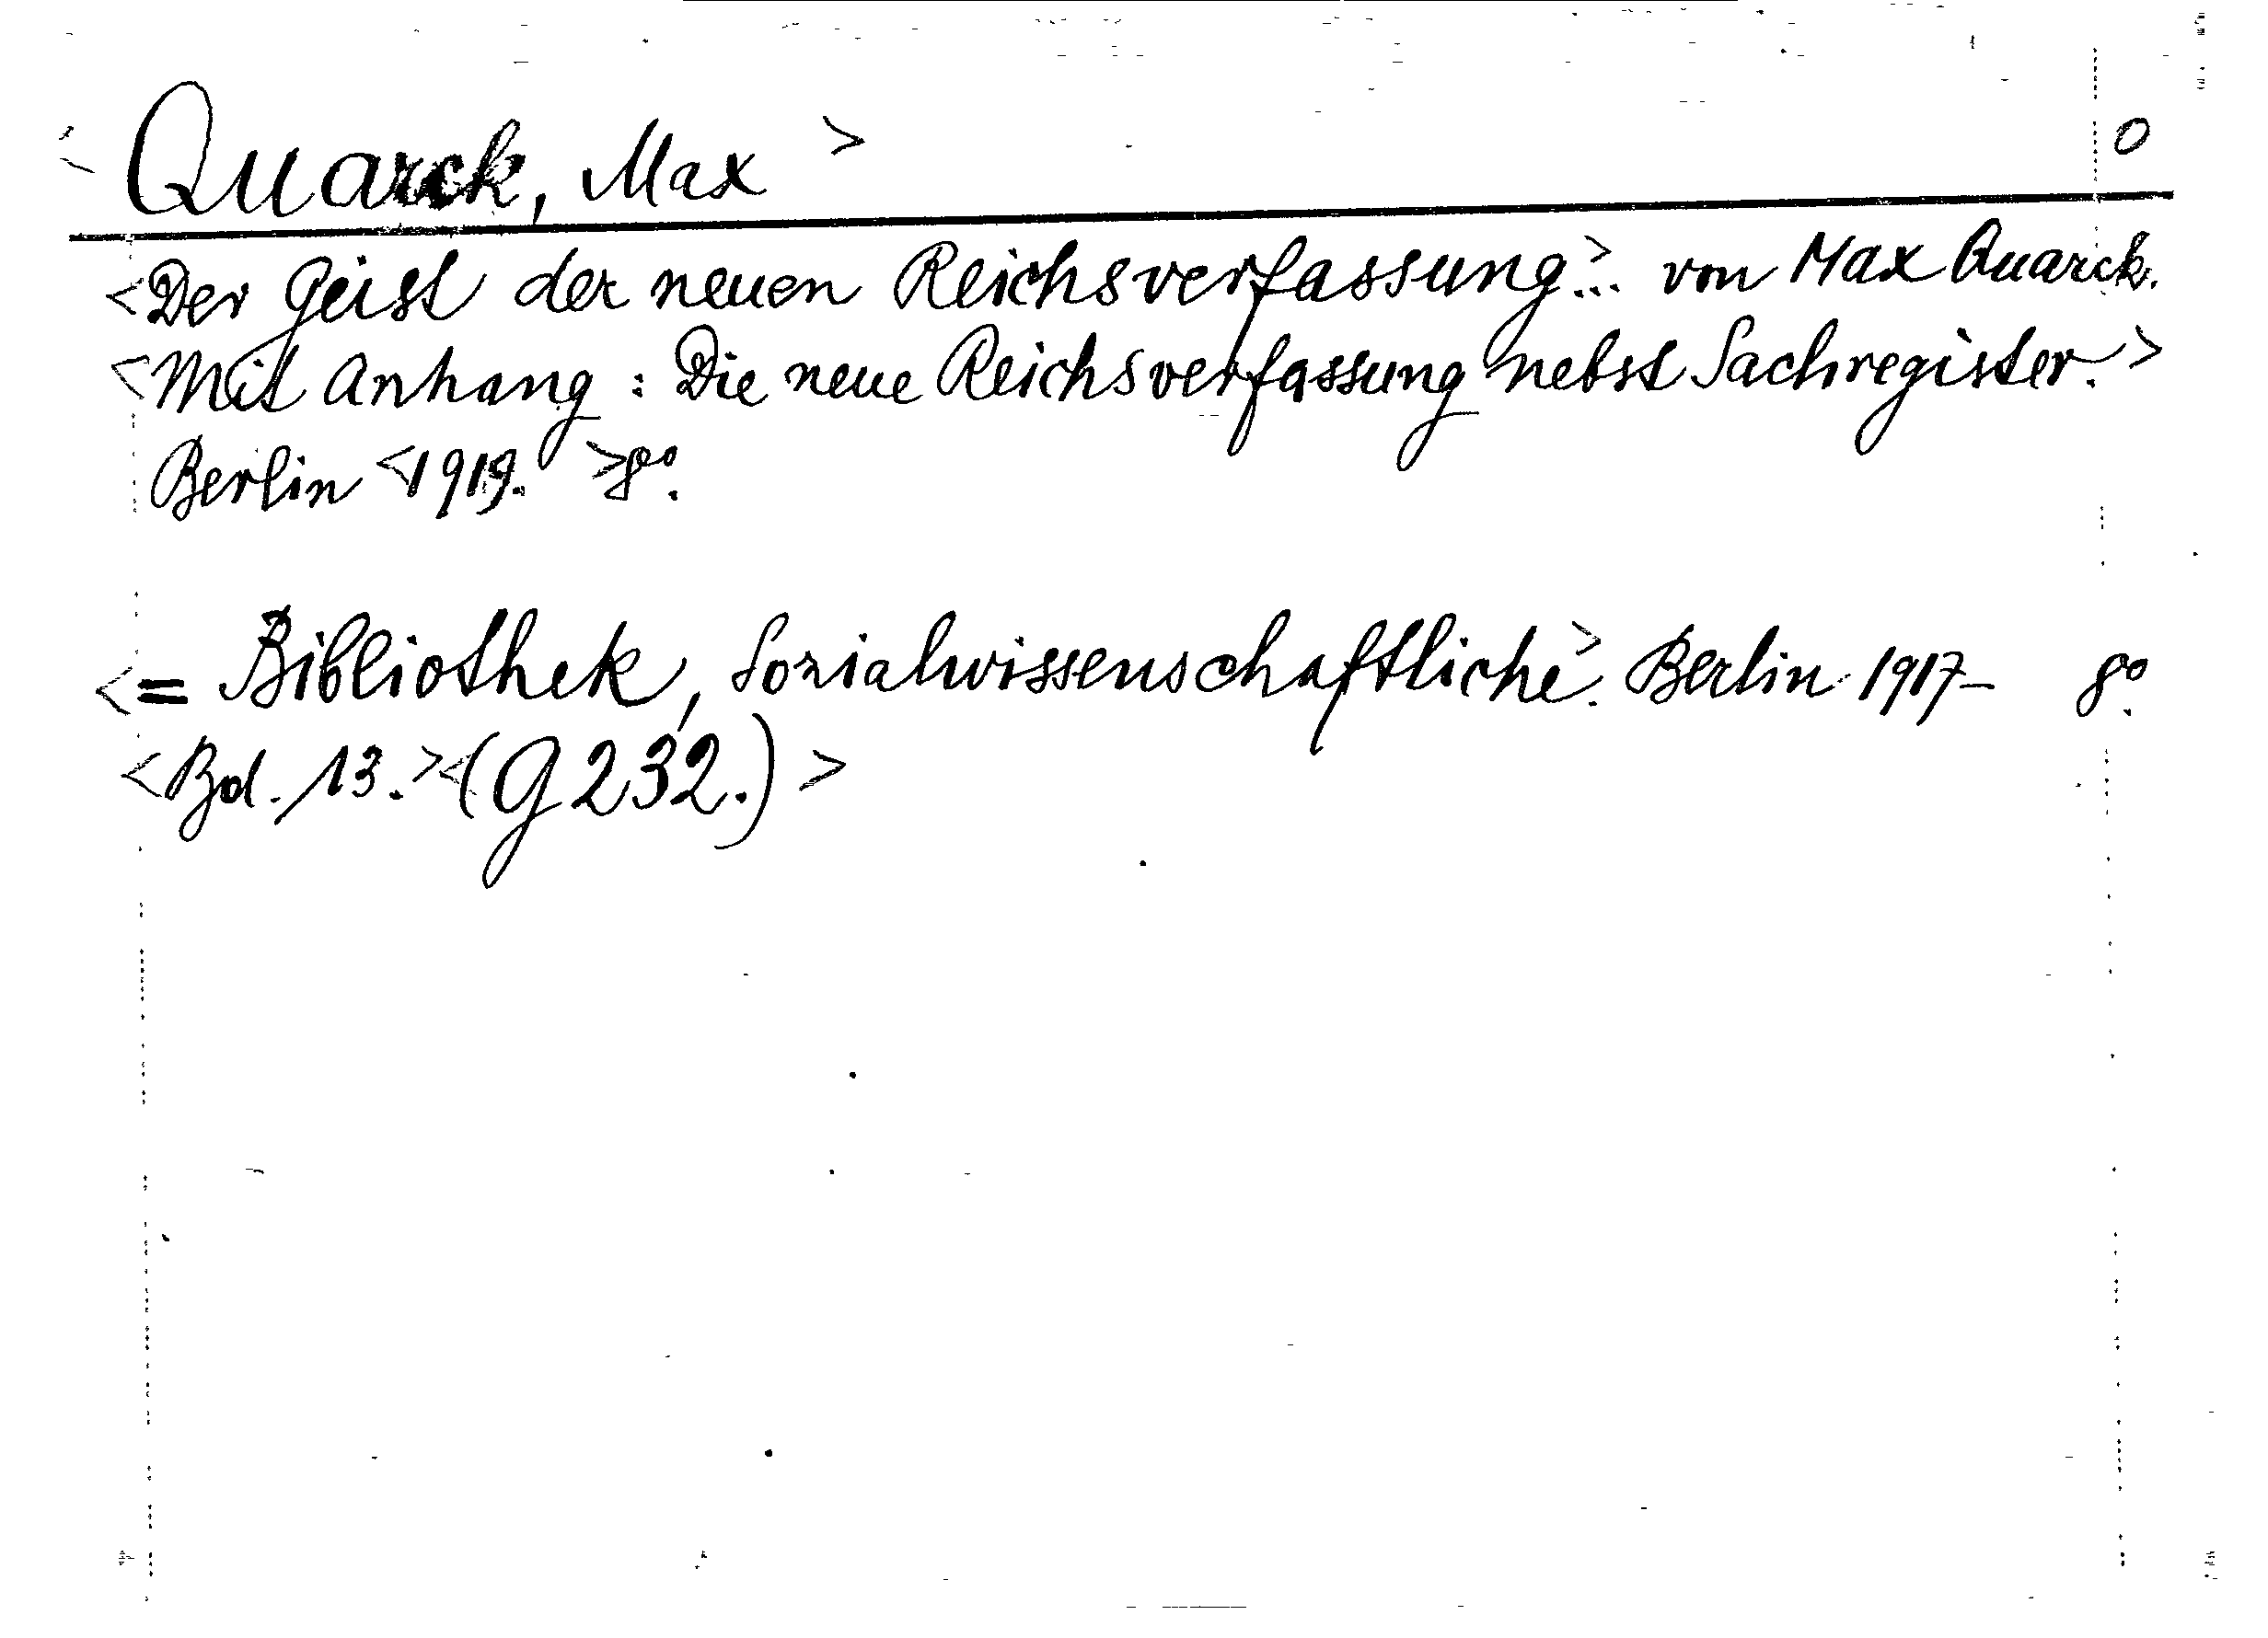 < Quarck, Max > O
<Der Geist der neuen Reichsverfassung>... von Max Quarck.
<Mit Anhang: Die neue Reichsverfassung nebst Sachregister.>
Berlin <1919. >8°.
<= Bibliothek, Sozialwissenschaftliche>. Berlin 1917- 8°.
<Bd. 13.><(G 232.)>